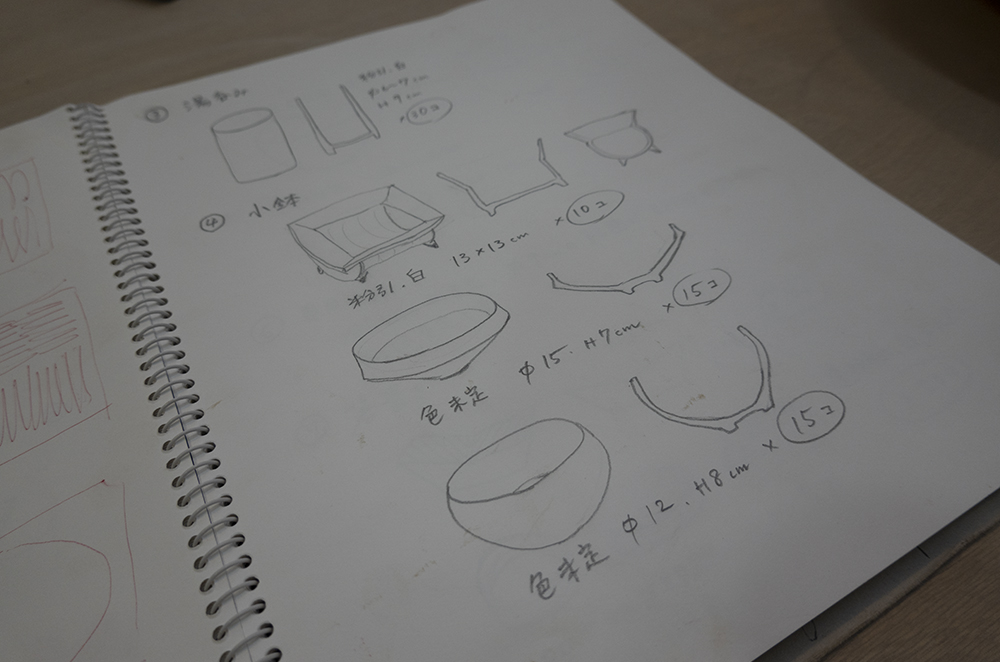 ③ 湯呑み
粉引.白
H 9cm
×30コ
④ 小鉢
粉引.白 13×13cm ×10コ
色未定 φ15. H7cm. ×15コ
色未定 φ12. H8cm ×15コ